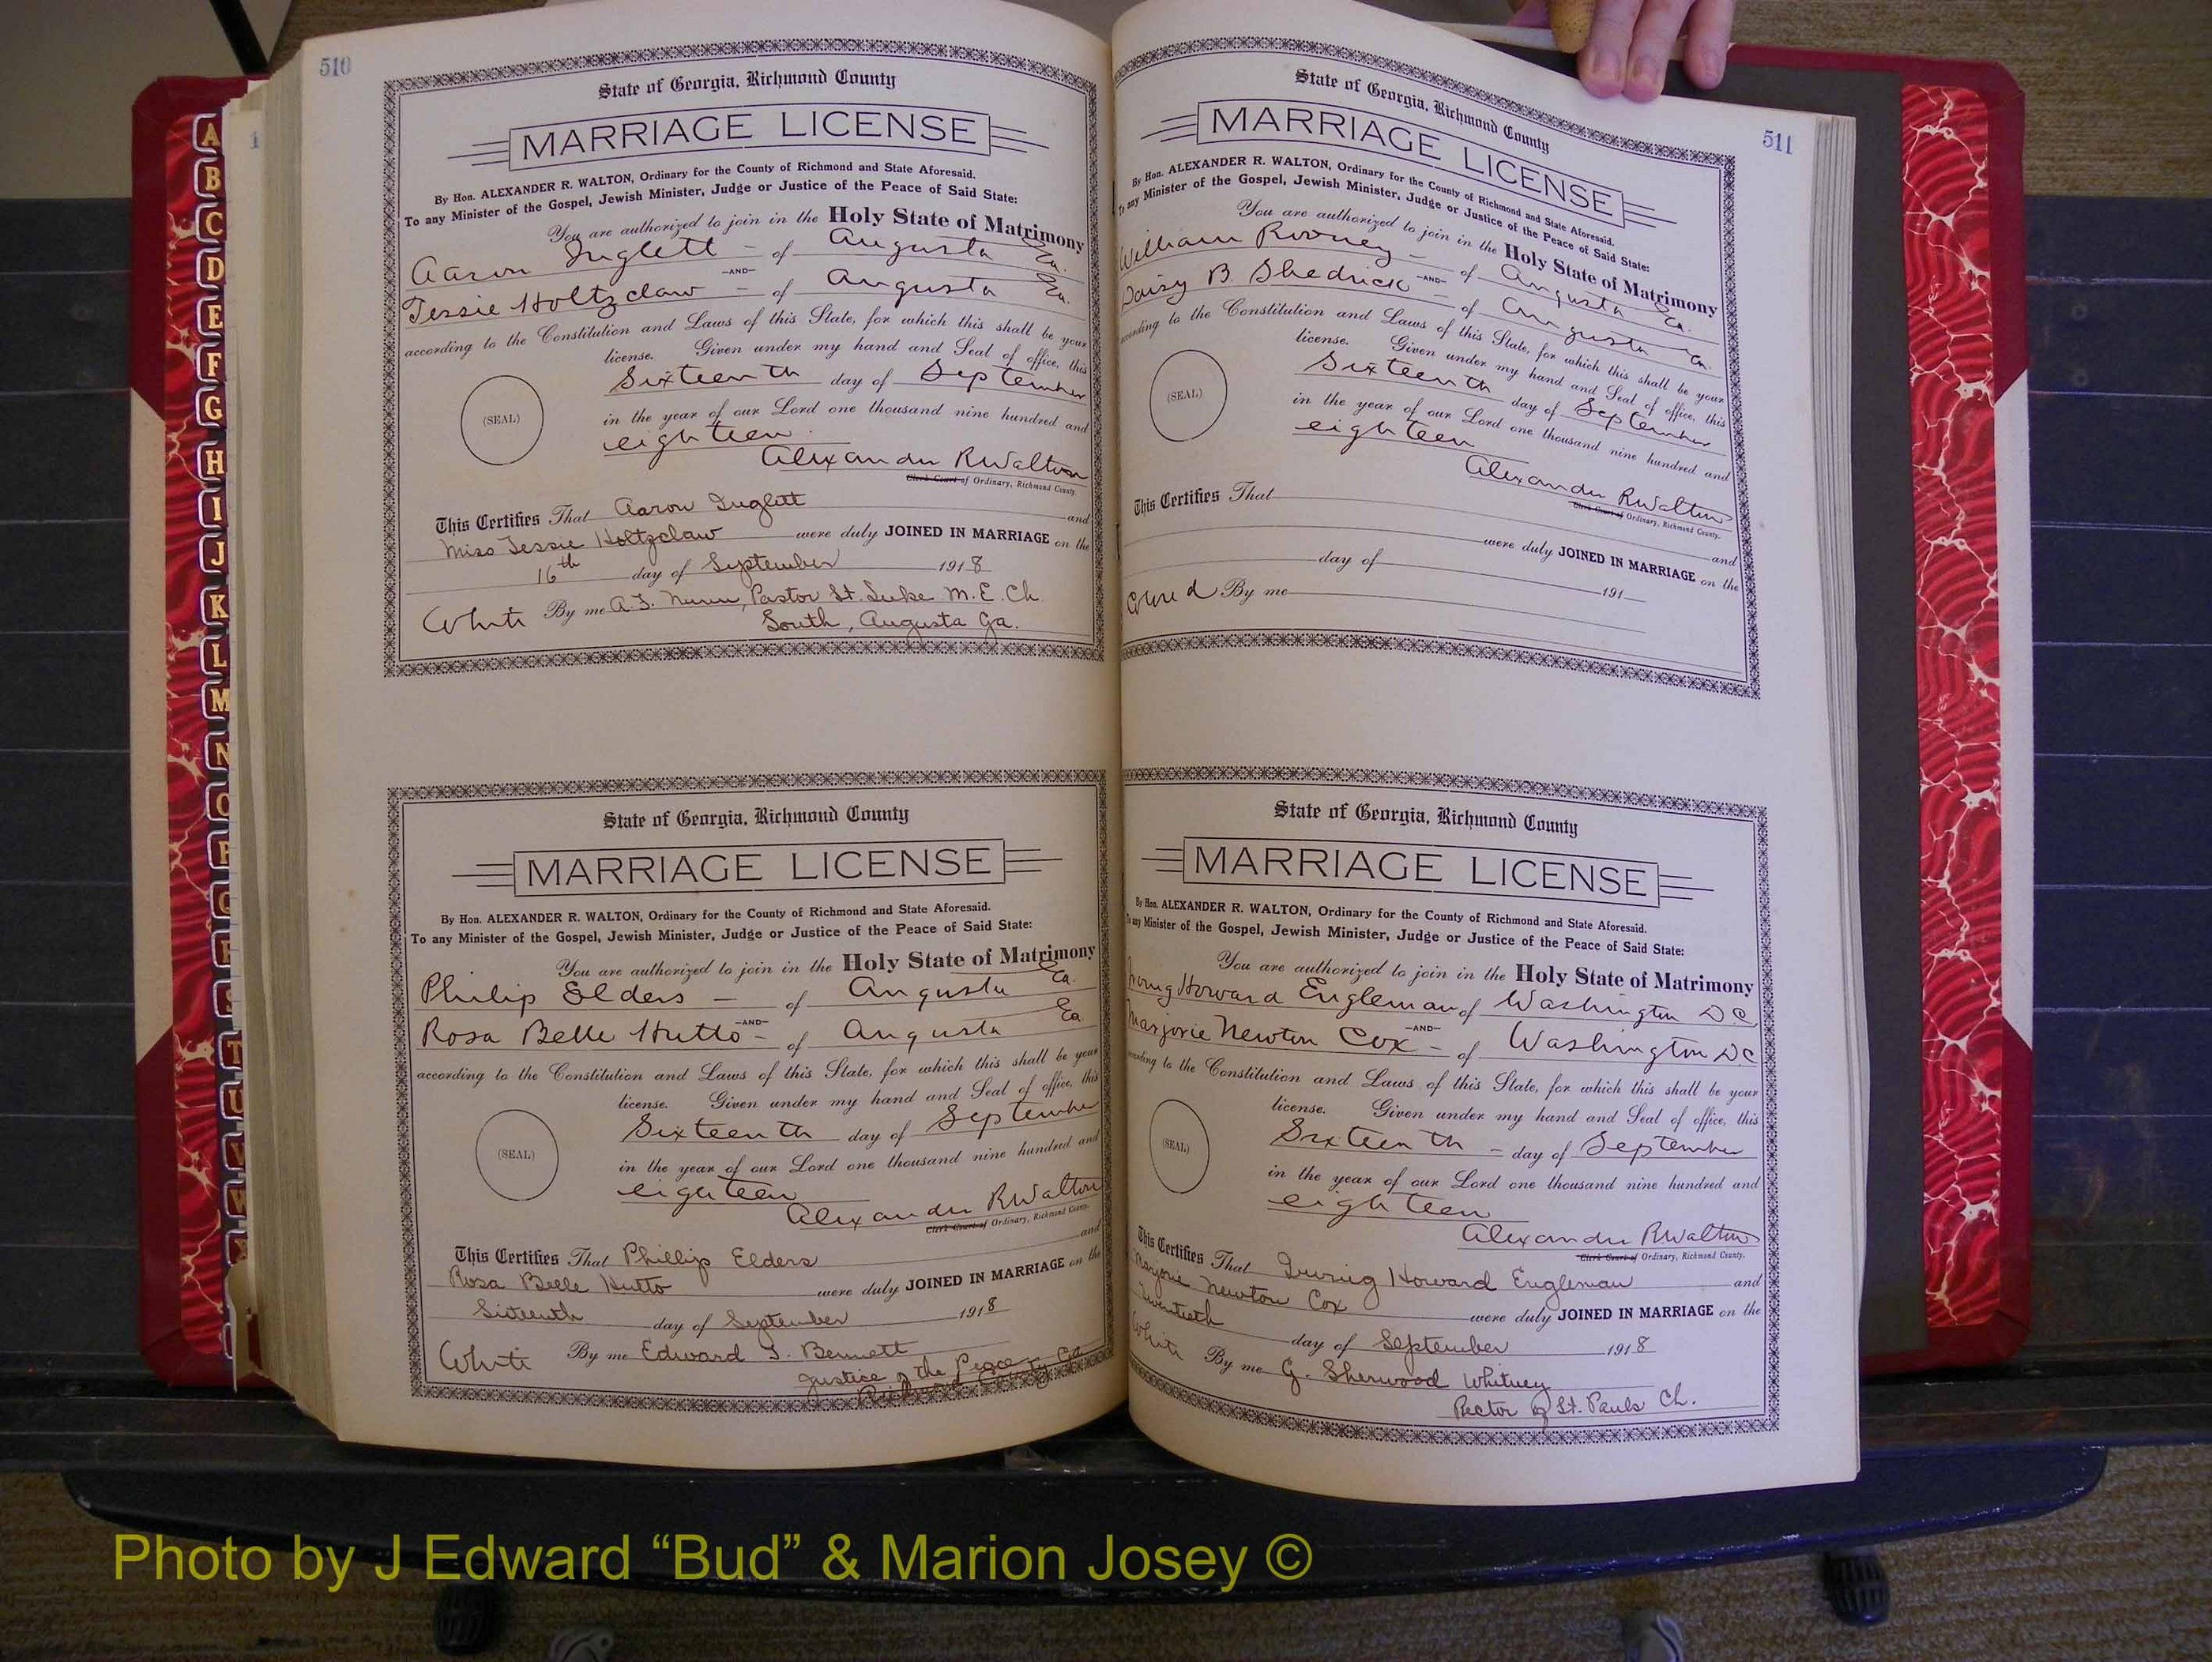 510
State of Georgia, Richmond County
MARRIAGE LICENSE
By Hon. ALEXANDER R. WALTON, Ordinary for the County of Richmond and State Aforesaid.
To any Minister of the Gospel, Jewish Minister, Judge or Justice of the Peace of Said State:
You are authorized to join in the Holy State of Matrimony
Aaron Inglett - of Augusta Ga.
-AND-
Jessie Holtzclaw - of Augusta Ga.
according to the Constitution and Laws of this State, for which this shall be your
license. Given under my hand and Seal of office, this
Sixteenth day of September
(SEAL)
in the year of our Lord one thousand nine hundred and
eighteen
Alexander R Walton
Clerk Court of Ordinary, Richmond County.
This Certifies That Aaron Inglett and
Miss Jessie Holtzclaw were duly JOINED IN MARRIAGE on the
16th day of September 1918
White By me Pastor St. Luke M. E. Ch.
South, Augusta Ga.
State of Georgia, Richmond County
MARRIAGE LICENSE
By Hon. ALEXANDER R. WALTON, Ordinary for the County of Richmond and State Aforesaid.
To any Minister of the Gospel, Jewish Minister, Judge or Justice of the Peace of Said State:
You are authorized to join in the Holy State of Matrimony
Philip Elders - of Augusta Ga.
-AND-
Rosa Belle Hutto - of Augusta Ga
according to the Constitution and Laws of this State, for which this shall be your
license. Given under my hand and Seal of office, this
Sixteenth day of September
(SEAL)
in the year of our Lord one thousand nine hundred and
eighteen
Alexander R Walton
Clerk Court of Ordinary, Richmond County.
This Certifies That Phillip Elders and
Rosa Belle Hutto were duly JOINED IN MARRIAGE on the
Sixteenth day of September 1918
White By me Edward J. Bennett
Justice of the Peace
Richmond County Ga
511
State of Georgia, Richmond County
MARRIAGE LICENSE
By Hon. ALEXANDER R. WALTON, Ordinary for the County of Richmond and State Aforesaid.
To any Minister of the Gospel, Jewish Minister, Judge or Justice of the Peace of Said State:
You are authorized to join in the Holy State of Matrimony
William Rooney - of Augusta Ga.
-AND-
Daisy B. Shedrick - of Augusta Ga.
according to the Constitution and Laws of this State, for which this shall be your
license. Given under my hand and Seal of office, this
Sixteenth day of September
(SEAL)
in the year of our Lord one thousand nine hundred and
eighteen
Alexander R Walton
Clerk Court of Ordinary, Richmond County.
This Certifies That and
were duly JOINED IN MARRIAGE on the
day of 191
Colored By me
State of Georgia, Richmond County
MARRIAGE LICENSE
By Hon. ALEXANDER R. WALTON, Ordinary for the County of Richmond and State Aforesaid.
To any Minister of the Gospel, Jewish Minister, Judge or Justice of the Peace of Said State:
You are authorized to join in the Holy State of Matrimony
Irving Howard Engleman of Washington D.C.
-AND-
Marjorie Newton Cox - of Washington DC
according to the Constitution and Laws of this State, for which this shall be your
license. Given under my hand and Seal of office, this
Sixteenth - day of September
(SEAL)
in the year of our Lord one thousand nine hundred and
eighteen
Alexander R Walton
Clerk Court of Ordinary, Richmond County.
This Certifies That Irving Howard Engleman and
Marjorie Newton Cox were duly JOINED IN MARRIAGE on the
Twentieth day of September 1918
White By me G. Sherwood Whitney
Rector of St. Pauls Ch.
A
B
C
D
E
F
G
H
I
J
K
L
M
N
O
P
Q
R
S
T
U
V
W
Photo by J Edward “Bud” & Marion Josey ©